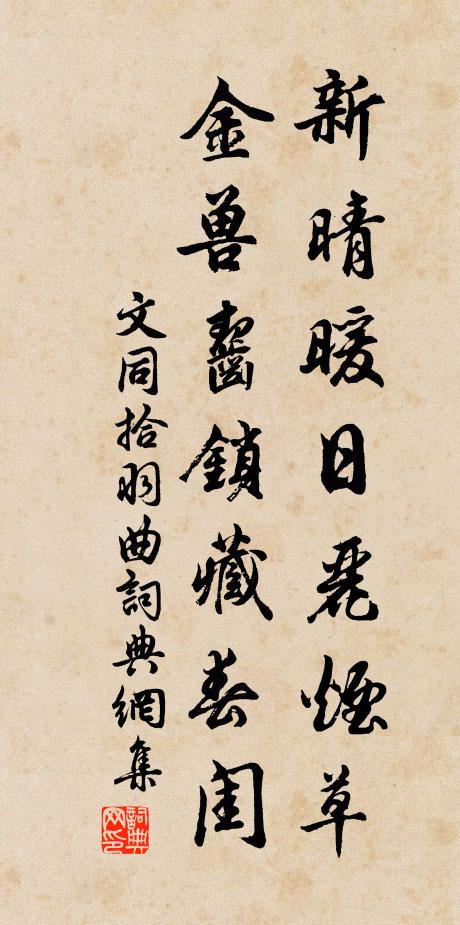 新晴暖日麗煙草
金兽齧鎖藏春闺
文同拾羽曲詞典網集
詞典网印